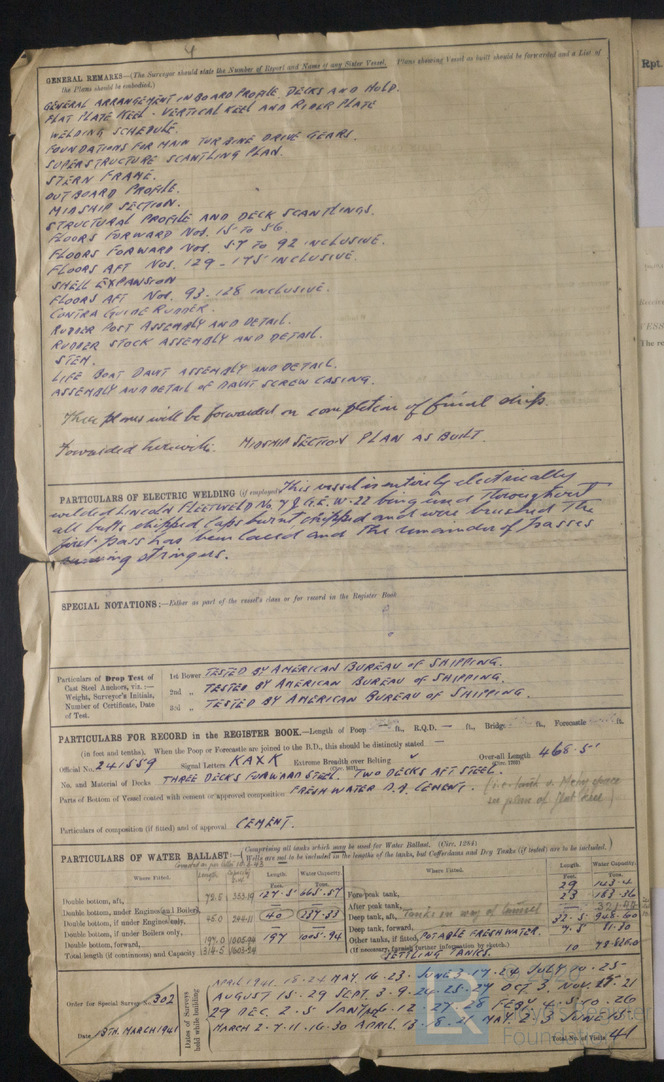 4
GENERAL REMARKS—(The Surveyor should state the Number of Report and Name of any Sister Vessel. Plans showing Vessel as built should be forwarded and a List of
the Plans should be embodied.)
GENERAL ARRANGEMENT INBOARD PROFILE DECKS AND HOLD.
FLAT PLATE KEEL - VERTICAL KEEL AND RIDER PLATE
WELDING SCHEDULE.
FOUNDATIONS FOR MAIN TURBINE DRIVE GEARS.
SUPERSTRUCTURE SCANTLING PLAN.
STERN FRAME.
OUTBOARD PROFILE.
MIDSHIP SECTION.
STRUCTURAL PROFILE AND DECK SCANTLINGS.
FLOORS FORWARD NOS. 15 TO 56
FLOORS FORWARD NOS. 57 TO 92 INCLUSIVE.
FLOORS AFT NOS. 129 - 175 INCLUSIVE.
SHELL EXPANSION
FLOORS AFT NOS. 93 - 128 INCLUSIVE.
CONTRA GUIDE RUDDER.
RUDDER POST ASSEMBLY AND DETAIL.
RUDDER STOCK ASSEMBLY AND DETAIL.
STEM.
LIFE BOAT DAVIT ASSEMBLY AND DETAIL.
ASSEMBLY AND DETAIL OF DAVIT SCREW CASING.
These plans will be forwarded on completion of final ship.
Forwarded herewith. MIDSHIP SECTION PLAN AS BUILT.
PARTICULARS OF ELECTRIC WELDING (if employed) This vessel is entirely electrically
welded Lincoln Fleetweld No. 7 & G.E. W-22 being used throughout
all butts chipped caps burnt chipped and wire brushed The
first pass has been laced and the remainder of passes
stringers.
SPECIAL NOTATIONS:—Either as part of the vessel's class or for record in the Register Book
Particulars of Drop Test of
Cast Steel Anchors, viz.:—
Weight, Surveyor's Initials,
Number of Certificate, Date
of Test.
1st Bower TESTED BY AMERICAN BUREAU OF SHIPPING.
2nd " TESTED BY AMERICAN BUREAU OF SHIPPING.
3rd " TESTED BY AMERICAN BUREAU OF SHIPPING.
PARTICULARS FOR RECORD in the REGISTER BOOK.—Length of Poop ft., R.Q.D. — ft., Bridge ft., Forecastle ft.
(in feet and tenths). When the Poop or Forecastle are joined to the B.D., this should be distinctly stated —
Official No. 241559 Signal Letters KAXK Extreme Breadth over Belting Over-all Length 468.5'
No. and Material of Decks THREE DECKS FORWARD STEEL. TWO DECKS AFT STEEL.
Parts of Bottom of Vessel coated with cement or approved composition FRESH WATER D.B. CEMENT.
in place of flat keel)
Particulars of composition (if fitted) and of approval CEMENT.
PARTICULARS OF WATER BALLAST:—(Comprising all tanks which may be used for Water Ballast. (Circ. 1284)
Wells are not to be included in the lengths of the tanks, but Cofferdams and Dry Tanks (if tested) are to be included.)
Where Fitted. Length. Water Capacity.
Feet. Tons.
Double bottom, aft, 127.5' 665.57
Double bottom, under Engines and Boilers,
Double bottom, if under Engines only, 40 237.33
Double bottom, if under Boilers only,
Double bottom, forward, 197 1005.94
Total length (if continuous) and Capacity
Where Fitted. Length. Water Capacity.
Feet. Tons.
Fore peak tank, 29
After peak tank, 23 183.36
Deep tank, aft, Tanks in way of tunnel
Deep tank, forward, 32.5 948.60
Other tanks, if fitted, POTABLE FRESHWATER. 7.5
(If necessary, furnish further information by sketch.)
SETTLING TANKS. 10
Order for Special Survey No. 302
Date 13TH. MARCH 1941
Dates of Surveys
held while building
APRIL 1941. 18-24 MAY 16-23 JUNE 3-17-24 JULY 10-25-
AUGUST 15-29 SEPT. 3-9-20-25-27 OCT 3 NOV.
29 DEC. 2-5 JANY 6-12-27-28 FEBY 4-5-10-26
MARCH 2-7-11-16-30 APRIL 13-18-21 MAY. 2-3 JUNE 15
Total No. of Visits 41
Foundation
Rpt.